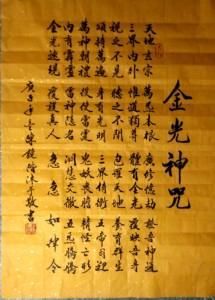 金光神咒
天地玄宗萬炁本根廣修億劫證吾神通
三界內外惟道獨尊體有金光覆映吾身
視之不見聽之不聞包羅天地養育群生
誦持萬遍身有光明三界侍衛五帝司迎
萬神朝禮役使雷霆鬼妖喪膽精怪亡形
內有霹靂雷神隱名洞慧交徹五炁騰騰
金光速現覆護真人急急如律令
庚子年敬書